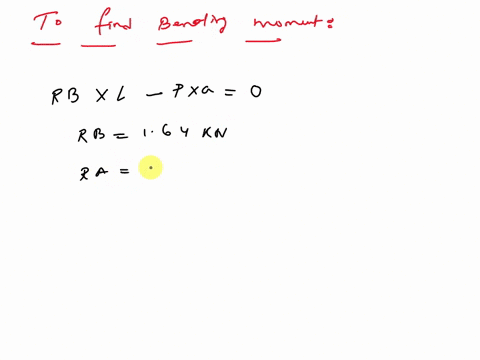 To find Bending moment:
RB × L - P × a = 0
RB = 1.64 KN
RA =